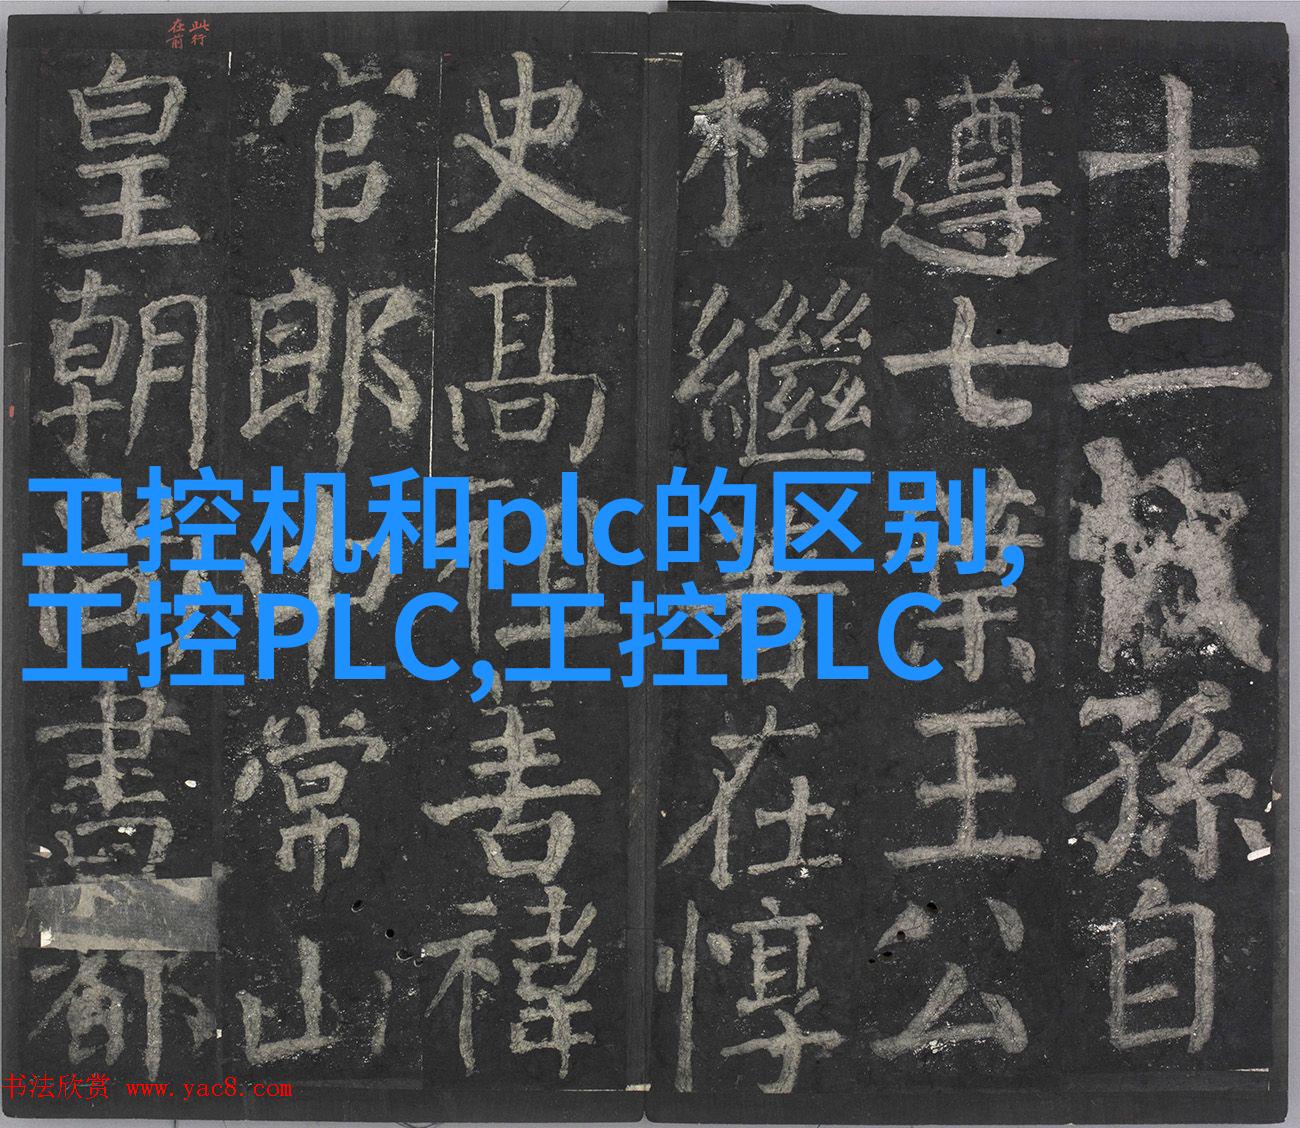 十二孫自
遵七葉王公
相繼著在惇
史高祖善禕
官郎中常山
皇朝尚書都
此行
在前
工控机和plc的区别,
工控PLC,工控PLC
书法欣赏 www.yac8.com